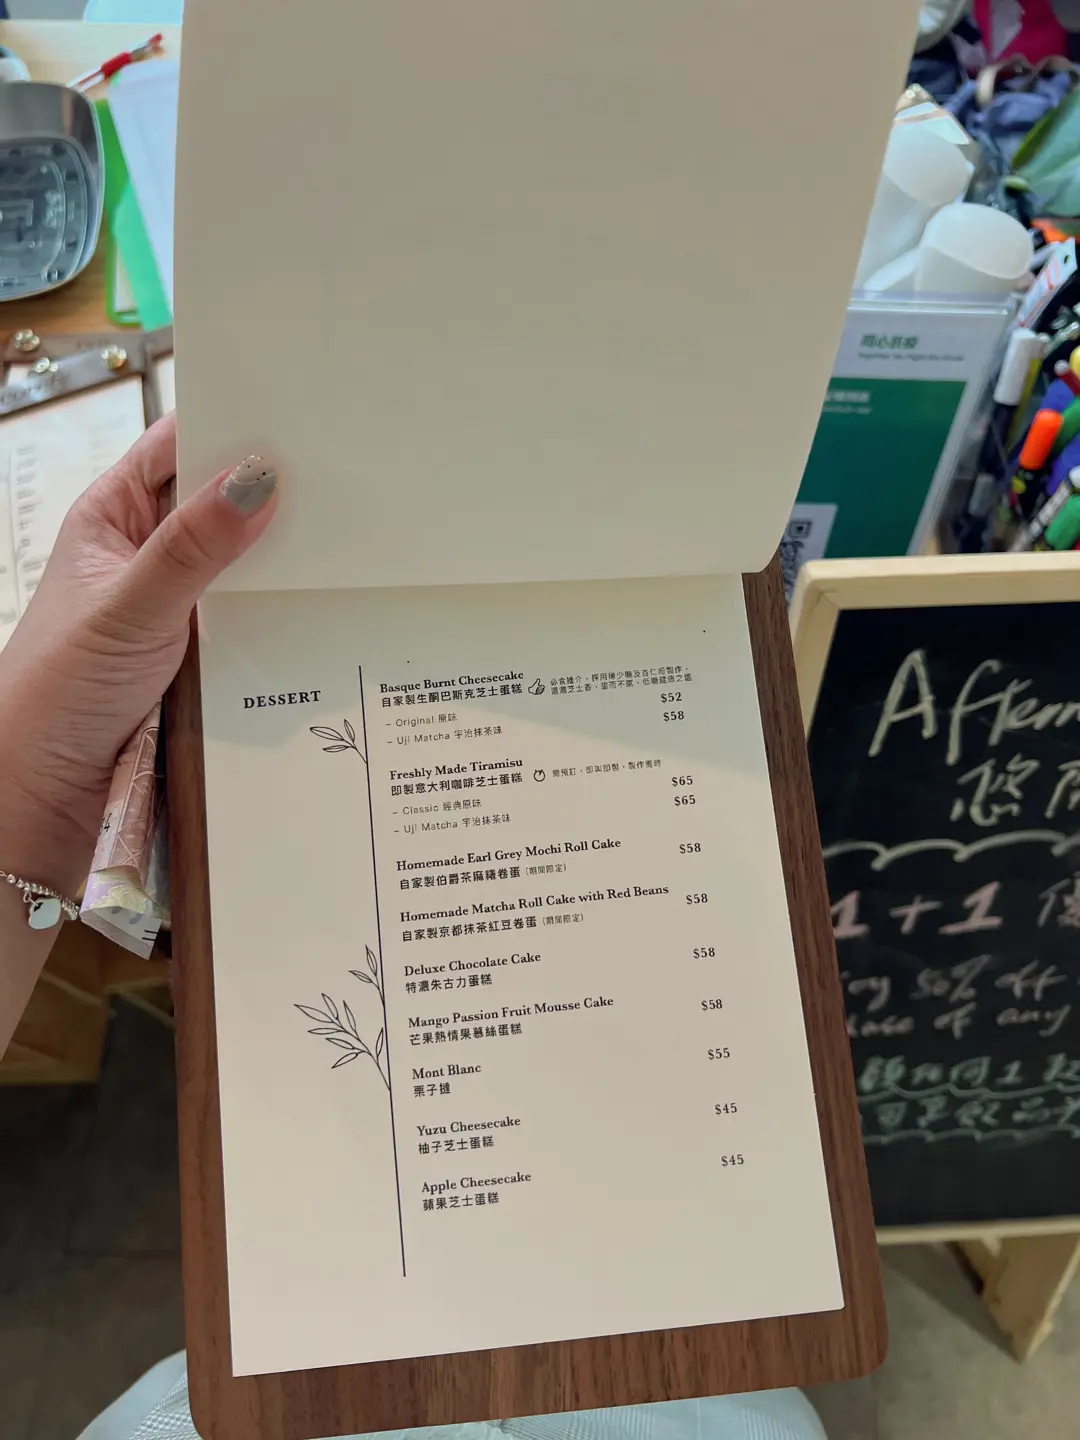 DESSERT
Basque Burnt Cheesecake
自家製生酮巴斯克芝士蛋糕
必食推介，採用稀少糖及杏仁粉製作，
濃濃芝士香，甜而不膩，低糖健康之選
– Original 原味 $52
– Uji Matcha 宇治抹茶味 $58
Freshly Made Tiramisu
即製意大利咖啡芝士蛋糕
需預訂，即叫即製，製作需時
– Classic 經典原味 $65
– Uji Matcha 宇治抹茶味 $65
Homemade Earl Grey Mochi Roll Cake $58
自家製伯爵茶麻糬卷蛋 (期間限定)
Homemade Matcha Roll Cake with Red Beans $58
自家製京都抹茶紅豆卷蛋 (期間限定)
Deluxe Chocolate Cake $58
特濃朱古力蛋糕
Mango Passion Fruit Mousse Cake $58
芒果熱情果慕絲蛋糕
Mont Blanc $55
栗子撻
Yuzu Cheesecake $45
柚子芝士蛋糕
Apple Cheesecake $45
蘋果芝士蛋糕
同心抗疫
Together, We Fight the Virus!
Aftern
悠
1+1
50% off
of any